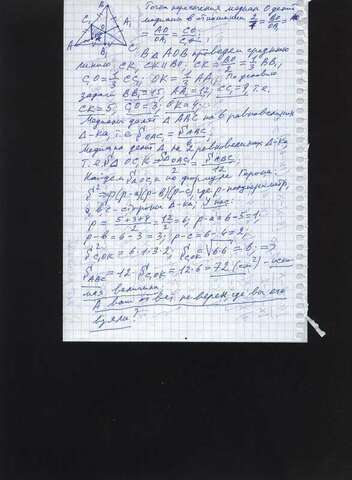 B
C₁ A₁
O
A B₁ C
Точка пересечения медиан O делит
медианы в отношении 2/1 = BO/OB₁ =
= AO/OA₁ = CO/C₁O.
В Δ AOB проведем среднюю
линию CK, CK ∥ BO, CK = BO/2 = 1/3 BB₁
C₁O = 1/3 CC₁, OK = 1/3 AA₁. По условию
задачи BB₁ = 15, AA₁ = 12, CC₁ = 9, т.е.
CK = 5, C₁O = 3, OK = 4.
Медианы делят Δ ABC на 6 равновеликих
Δ-ка, т.е. S =
Медиана делит Δ на 2 равновеликих Δ-ка
т.е. S Δ OC₁K =
Найдем S по формуле Герона:
S² = p(p-a)(p-b)(p-c), где p - полупериметр,
a, b, c - стороны Δ-ка. У нас:
p = (5+3+4)/2 = 12/2 = 6, p-a = 6-5 = 1,
p-b = 6-3 = 3, p-c = 6-4 = 2,
S²C₁OK = 6·1·3·2, S = √6·6 = 6, =>
S ABC = 12·S C₁OK = 12·6 = 72 (см²) - иско-
мая величина.
А ваш ответ неверен, где вы его
взяли?